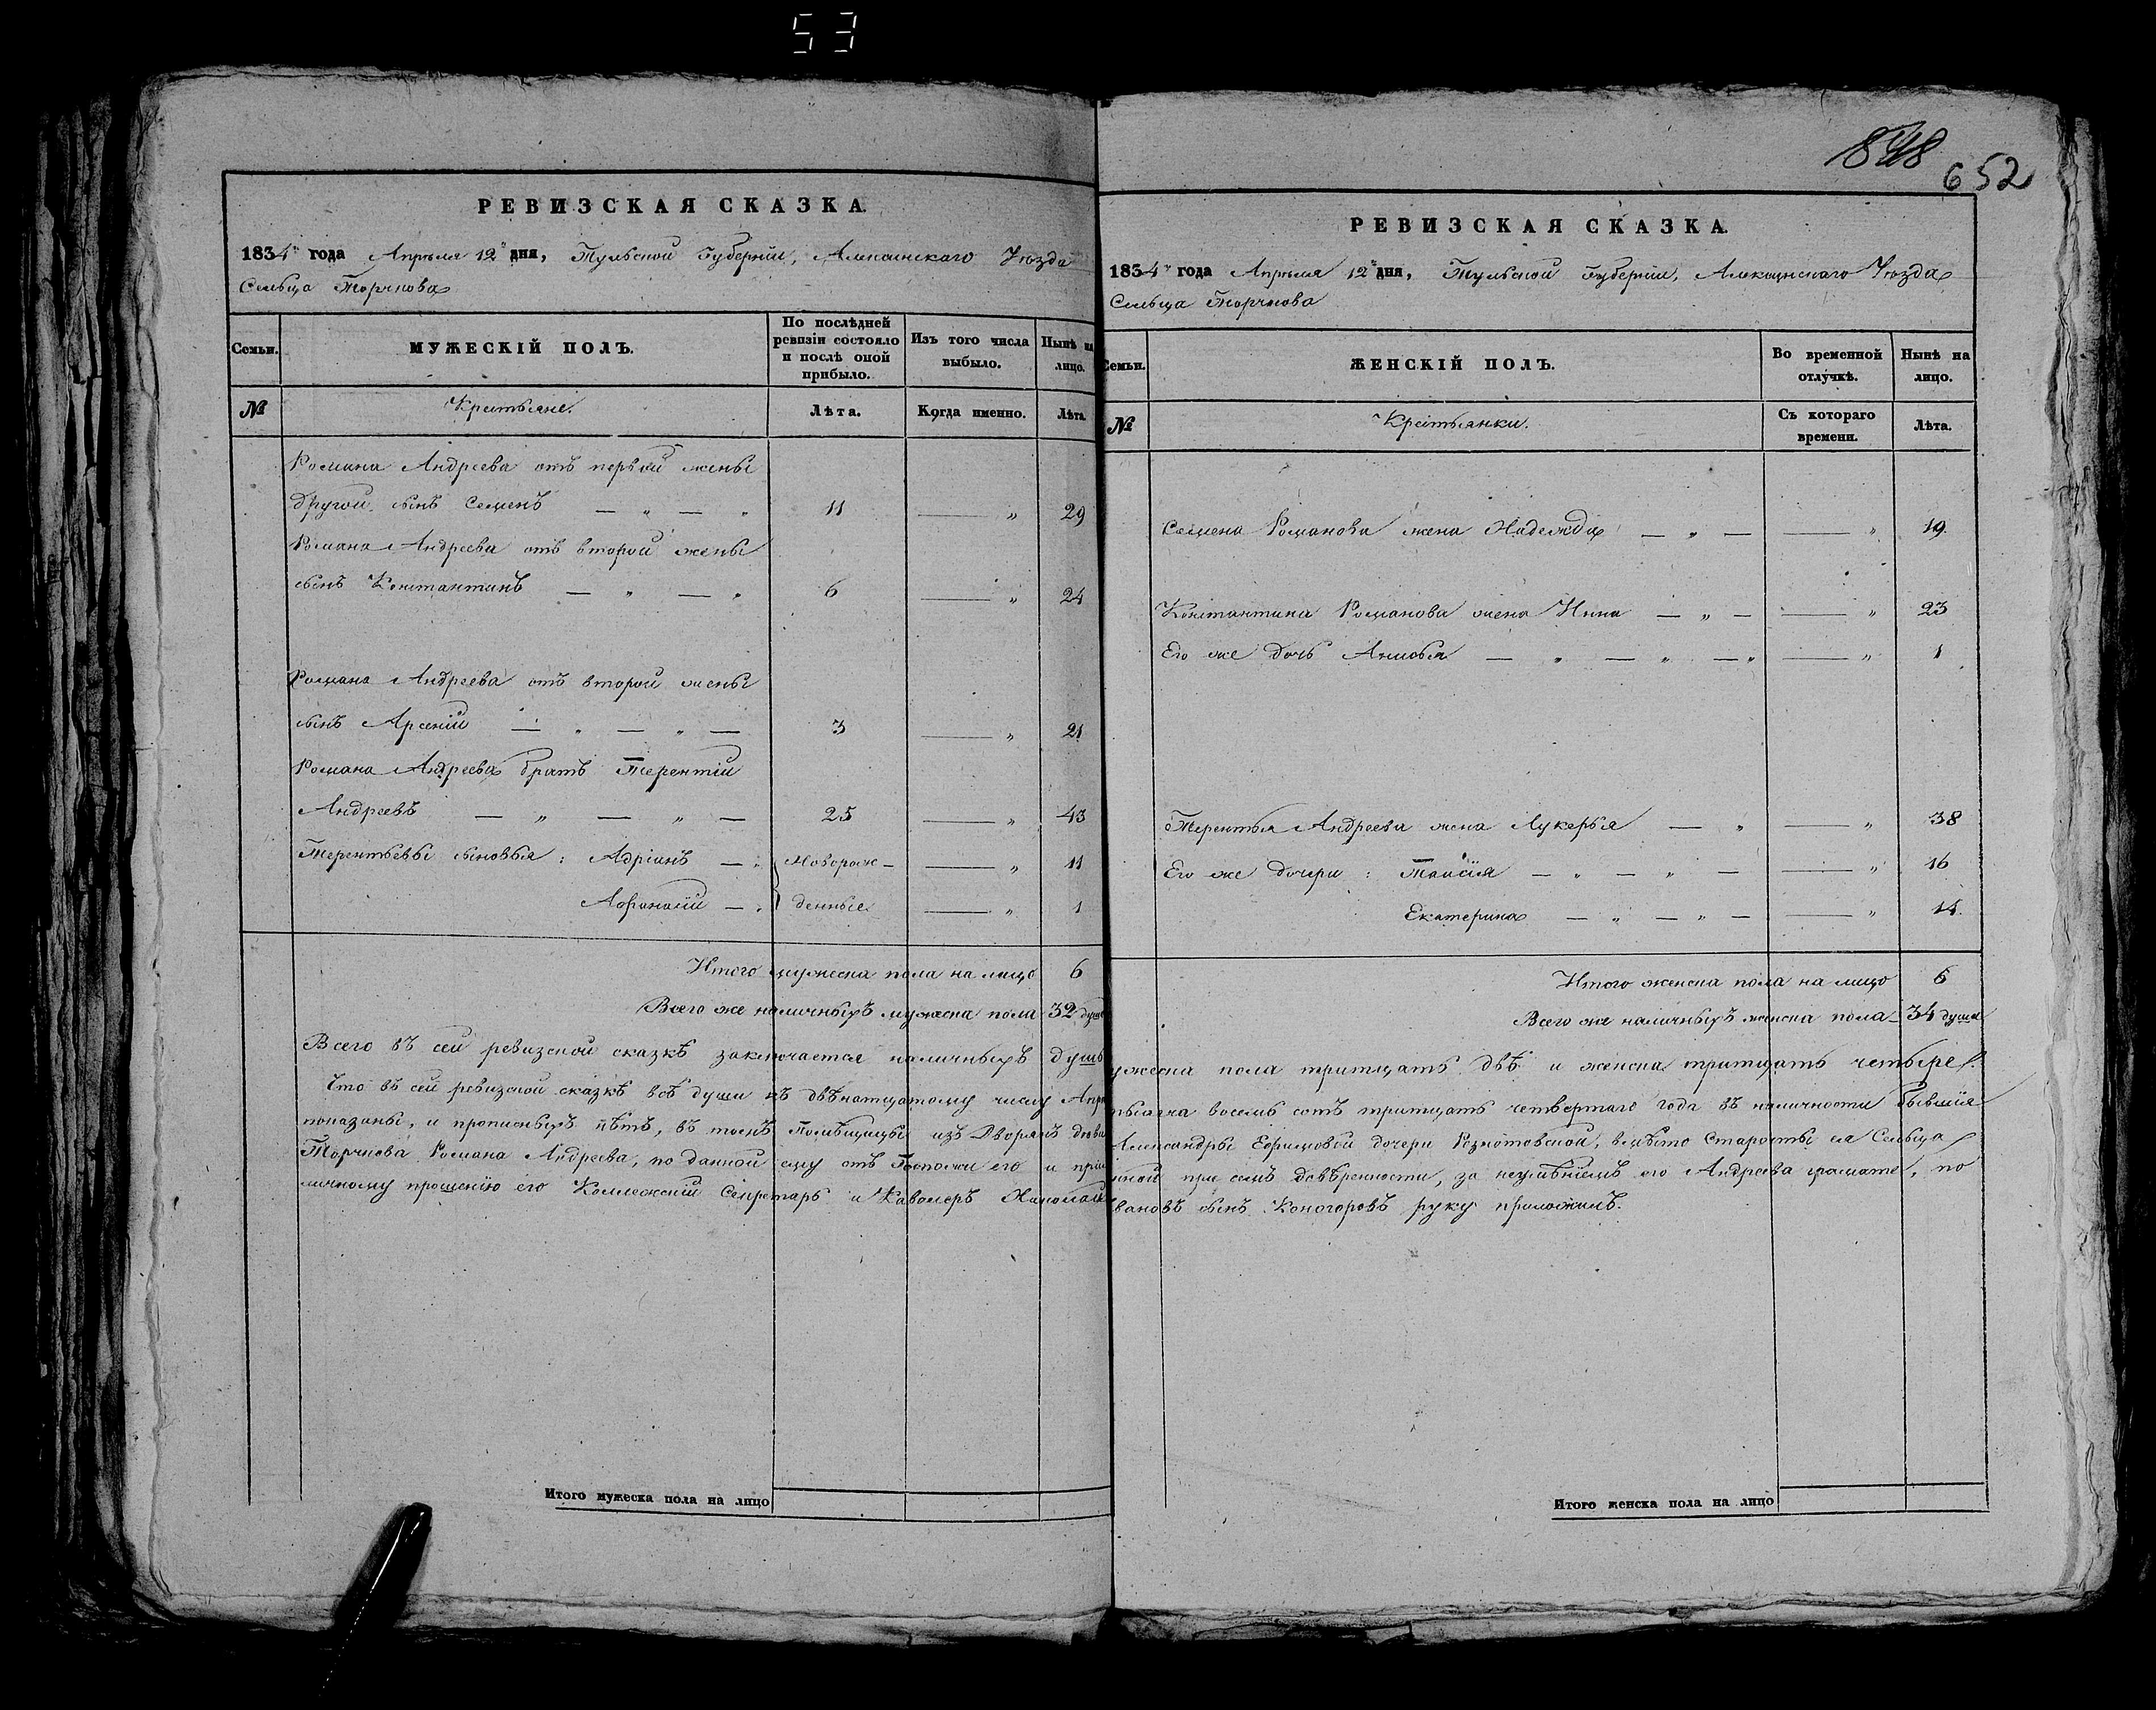 53
848
652
РЕВИЗСКАЯ СКАЗКА.
1834 года Апреля 12 дня, Тульской Губернии, Алексинскаго Уезда
Сельца Торчкова
Семьи. МУЖЕСКІЙ ПОЛЪ. По послѣдней ревизіи состояло и послѣ оной прибыло. Изъ того числа выбыло. Нынѣ на лицо.
№ Крестьяне. Лѣта. Когда именно. Лѣта.
Романа Андреева отъ первой жены
другой сынъ Семенъ — " — " 11 — " 29
Романа Андреева отъ второй жены
сынъ Константинъ — " — " 6 — " 24
Романа Андреева отъ второй жены
сынъ Арсеній — " — " — 3 — " 21
Романа Андреева братъ Терентій
Андреевъ — " — " — 25 — " 43
Терентьевы сыновья: Адріанъ — " Новорож- — " 11
Афонасій — " денные — " 1
Итого мужеска пола на лицо 6
Всего же наличныхъ мужеска пола 32 душ
Всего въ сей ревизской сказкѣ заключается наличныхъ душъ
Что въ сей ревизской сказкѣ всѣ души къ двѣнатцатому числу Апр
показаны, и прописныхъ нѣтъ, въ томъ Помѣщицы изъ Дворянъ дѣви
Торчкова Романа Андреева, по данной ему отъ Госпожи его и при
личному прошенію его Коллежскій Секретарь и Кавалеръ
Итого мужеска пола на лицо
РЕВИЗСКАЯ СКАЗКА.
1834 года Апреля 12 дня, Тульской Губерніи, Алексинскаго Уезда
Сельца Торчкова
Семьи. ЖЕНСКІЙ ПОЛЪ. Во временной отлучкѣ. Нынѣ на лицо.
№ Крестьянки. Съ котораго времени. Лѣта.
Семена Романова жена Надежда — " — — " 19
Константина Романова жена Нина — " — — " 23
Его же дочь — " — " — " — " 1
Терентья Андреева жена Лукерья — " — " 38
Его же дочери: Таисія — " — " — — " 16
Екатерина — " — " — — " 14
Итого женска пола на лицо 6
Всего же наличныхъ женска пола — 34 души
ужеска пола тритцать двѣ и женска тритцать четыре.
тысяча восемь сотъ тритцать четвертаго года въ наличности бывшія
Александры Ефимовой дочери вмѣсто Старосты ея Сельца
ной при семъ довѣренности, за неумѣніемъ его Андреева грамате, по
вановъ сынъ Коногоровъ руку приложилъ.
Итого женска пола на лицо